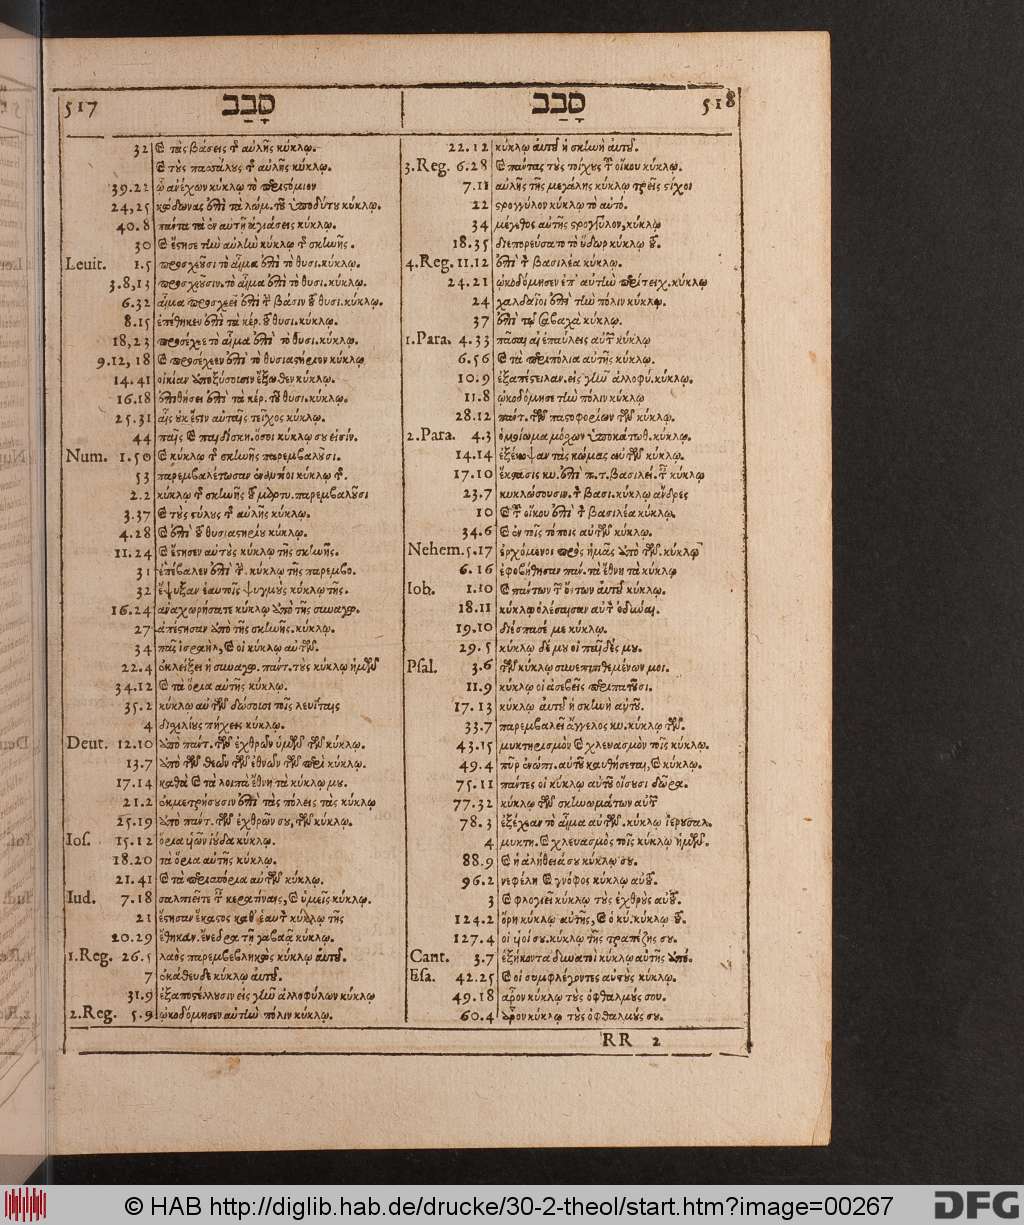 517 סָבַב
32 καὶ τὰς βάσεις τ αὐλῆς κύκλῳ.
καὶ τοὺς πασσάλους τ αὐλῆς κύκλῳ.
39.22 ᾤαν ἔχων κύκλῳ τὸ περιστόμιον
24,25 κώδωνας ἐπὶ τὰ λώμ. τοῦ ὑποδύτου κύκλῳ.
40.8 πάντα τὰ ἐν αὐτῇ ἁγιάσεις κύκλῳ.
30 καὶ ἔστησε τὴν αὐλὴν κύκλῳ τ σκηνῆς.
Leuit. 1.5 προσχεοῦσι τὸ αἷμα ἐπὶ τὸ θυσι. κύκλῳ.
3.8,13 προσχεοῦσιν. τὸ αἷμα ἐπὶ τὸ θυσι. κύκλῳ.
6.32 αἷμα προσχεεῖ ἐπὶ τ βάσιν τοῦ θυσι. κύκλῳ.
8.15 ἐπέθηκεν ἐπὶ τὰ κέρ. τοῦ θυσι. κύκλῳ.
18,23 προσέχεε τὸ αἷμα ἐπὶ τὸ θυσι. κύκλῳ.
9.12,18 καὶ προσέχεεν ἐπὶ τὸ θυσιαστήριον κύκλῳ
14.41 οἰκίαν ἀποξύσουσιν ἔξωθεν κύκλῳ.
16.18 ἐπιθήσει ἐπὶ τὰ κέρ. τοῦ θυσι. κύκλῳ.
25.31 αἷς οὐκ ἔστιν αὐταῖς τεῖχος κύκλῳ.
44 παῖς καὶ παιδίσκη. ὅσοι κύκλῳ σου εἰσίν.
Num. 1.50 καὶ κύκλῳ τ σκηνῆς παρεμβαλοῦσι.
53 παρεμβαλέτωσαν ἐναντίοι κύκλῳ τ.
2.2 κύκλῳ τ σκηνῆς τοῦ μαρτυ. παρεμβαλοῦσι
3.37 καὶ τοὺς στύλους τ αὐλῆς κύκλῳ.
4.28 καὶ ἐπὶ τοῦ θυσιαστηρίου κύκλῳ.
11.24 καὶ ἔστησεν αὐτοὺς κύκλῳ τῆς σκηνῆς.
31 ἐπέβαλεν ἐπὶ τ. κύκλῳ τῆς παρεμβο.
32 ἔψυξαν ἑαυτοῖς ψυγμοὺς κύκλῳ τῆς.
16.24 ἀναχωρήσατε κύκλῳ ἀπὸ τῆς συναγω.
27 ἀπέστησαν ἀπὸ τῆς σκηνῆς. κύκλῳ.
34 πᾶς ἰσραὴλ, καὶ οἱ κύκλῳ αὐτῶν.
22.4 ἐκλείξει ἡ συναγω. πάντ. τοὺς κύκλῳ ἡμῶν
34.12 καὶ τὰ ὅρια αὐτῆς κύκλῳ.
35.2 κύκλῳ αὐτῶν δώσουσι τοῖς λευίταις
4 δισχιλίους πήχεις κύκλῳ.
Deut. 12.10 ἀπὸ πάντ. τῶν ἐχθρῶν ὑμῶν τῶν κύκλῳ.
13.7 ἀπὸ τῶν θεῶν τῶν ἐθνῶν τῶν περὶ κύκλῳ.
17.14 καθὰ καὶ τὰ λοιπὰ ἔθνη τὰ κύκλῳ μου.
21.2 ἐκμετρήσουσιν ἐπὶ τὰς πόλεις τὰς κύκλῳ
25.19 ἀπὸ πάντ. τῶν ἐχθρῶν σου, τῶν κύκλῳ.
Ios. 15.12 ὅρια υἱῶν ἰούδα κύκλῳ.
18.20 τὰ ὅρια αὐτῆς κύκλῳ.
21.41 καὶ τὰ περισπόρια αὐτῶν κύκλῳ.
Iud. 7.18 σαλπιεῖτε τ κερατίναις, καὶ ὑμεῖς κύκλῳ.
21 ἔστησαν ἕκαστος καθ' ἑαυτ κύκλῳ τῆς
20.29 ἔθηκαν. ἔνεδρα τῇ γαβαὰ κύκλῳ.
1.Reg. 26.5 λαὸς παρεμβεβληκὼς κύκλῳ αὐτοῦ.
7 ἐκάθευδε κύκλῳ αὐτοῦ.
31.9 ἐξαποστέλλουσιν εἰς γῆν ἀλλοφύλων κύκλῳ
2.Reg. 5.9 ᾠκοδόμησεν αὐτὴν πόλιν κύκλῳ.
סָבַב 518
22.12 κύκλῳ αὐτοῦ ἡ σκηνὴ αὐτοῦ.
3.Reg. 6.28 καὶ πάντας τοὺς τοίχους τ οἴκου κύκλῳ.
7.11 αὐλῆς τῆς μεγάλης κύκλῳ τρεῖς στίχοι
22 στρογγύλον κύκλῳ τὸ αὐτό.
34 μέγεθος αὐτῆς στρογγύλον, κύκλῳ
18.35 διεπορεύσατο τὸ ὕδωρ κύκλῳ τοῦ.
4.Reg. 11.12 ἐπὶ τ βασιλέα κύκλῳ.
24.21 ᾠκοδόμησεν ἐπ' αὐτὴν περίτειχ. κύκλῳ
24 χαλδαῖοι ἐπὶ τὴν πόλιν κύκλῳ.
37 ἐπὶ τῷ σαβαχὰ κύκλῳ.
1.Para. 4.33 πᾶσαι αἱ ἐπαύλεις αὐτ κύκλῳ
6.56 καὶ τὰ περιπόλια αὐτῆς κύκλῳ.
10.9 ἐξαπέστειλαν. εἰς γῆν ἀλλοφύ. κύκλῳ.
11.8 ᾠκοδόμησε τὴν πόλιν κύκλῳ
28.12 πάντ. τῶν παστοφορίων τῶν κύκλῳ.
2.Para. 4.3 ὁμοίωμα μόσχων ὑποκάτωθ. κύκλῳ.
14.14 ἐξέκοψαν τὰς κώμας αὐτῶν κύκλῳ.
17.10 ἔκστασις κυ. ἐπὶ π. τ. βασιλεί. τ κύκλῳ
23.7 κυκλώσουσιν. τ βασι. κύκλῳ ἄνδρες
10 καὶ τ οἴκου ἐπὶ τ βασιλέα κύκλῳ.
34.6 καὶ ἐν τοῖς τόποις αὐτῶν κύκλῳ.
Nehem. 5.17 ἐρχόμενοι πρὸς ἡμᾶς ἀπὸ τῶν. κύκλῳ
6.16 ἐφοβήθησαν πάν. τὰ ἔθνη τὰ κύκλῳ
Iob. 1.10 καὶ πάντων τ ὄντων αὐτοῦ κύκλῳ.
18.11 κύκλῳ ὀλέσαισαν αὐτ ὀδύναι.
19.10 διέσπασέ με κύκλῳ.
29.5 κύκλῳ δέ μου οἱ παῖδές μου.
Psal. 3.6 τῶν κύκλῳ συνεπιτιθεμένων μοι.
11.9 κύκλῳ οἱ ἀσεβεῖς περιπατοῦσι.
17.13 κύκλῳ αὐτοῦ ἡ σκηνὴ αὐτοῦ.
33.7 παρεμβαλεῖ ἄγγελος κυ. κύκλῳ τῶν.
43.15 μυκτηρισμὸν καὶ χλευασμὸν τοῖς κύκλῳ.
49.4 πῦρ ἐνώπι. αὐτοῦ καυθήσεται, καὶ κύκλῳ.
75.11 πάντες οἱ κύκλῳ αὐτοῦ οἴσουσι δῶρα.
77.32 κύκλῳ τῶν σκηνωμάτων αὐτ
78.3 ἐξέχεαν τὸ αἷμα αὐτῶν. κύκλῳ ἱερουσαλ.
4 μυκτη. καὶ χλευασμὸς τοῖς κύκλῳ ἡμῶν.
88.9 καὶ ἡ ἀλήθειά σου κύκλῳ σου.
96.2 νεφέλη καὶ γνόφος κύκλῳ αὐτοῦ.
3 καὶ φλογιεῖ κύκλῳ τοὺς ἐχθροὺς αὐτοῦ.
124.2 ὄρη κύκλῳ αὐτῆς, καὶ ὁ κύ. κύκλῳ τοῦ.
127.4 οἱ υἱοί σου. κύκλῳ τῆς τραπέζης σου.
Cant. 3.7 ἑξήκοντα δυνατοὶ κύκλῳ αὐτῆς ἀπό.
Esa. 42.25 καὶ οἱ συμφλέγοντες αὐτοὺς κύκλῳ.
49.18 ἆρον κύκλῳ τοὺς ὀφθαλμούς σου.
60.4 ἆρον κύκλῳ τοὺς ὀφθαλμούς σου.
RR 2
© HAB http://diglib.hab.de/drucke/30-2-theol/start.htm?image=00267
DFG